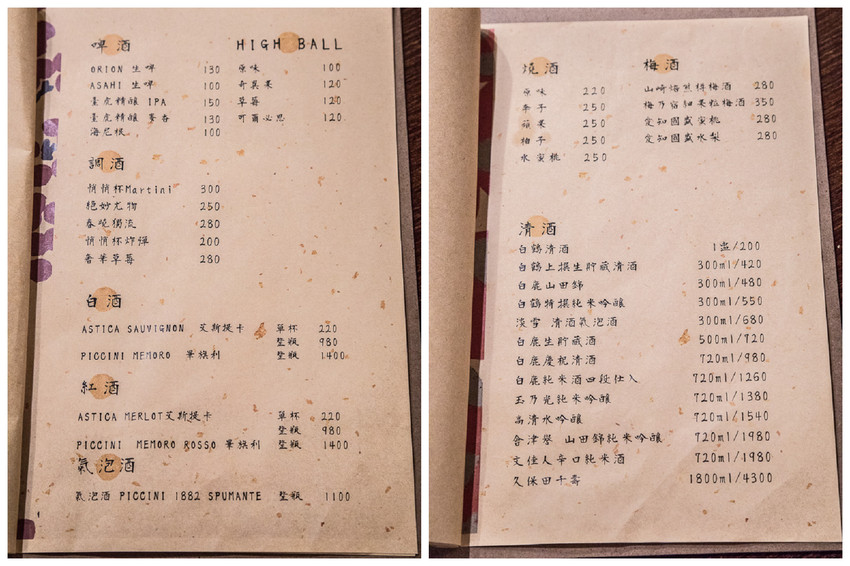 啤酒
ORION 生啤 130
ASAHI 生啤 100
臺虎精釀 IPA 150
臺虎精釀 麥香 130
海尼根 100
HIGH BALL
原味 100
奇異果 120
草莓 120
可爾必思 120
調酒
悄悄杯Martini 300
絕妙尤物 250
春吻獨流 280
悄悄杯炸彈 200
奢華草莓 280
白酒
ASTICA SAUVIGNON 艾斯提卡 單杯 220
整瓶 980
PICCINI MEMORO 華族利 整瓶 1400
紅酒
ASTICA MERLOT艾斯提卡 單杯 220
整瓶 980
PICCINI MEMORO ROSSO 華族利 整瓶 1400
氣泡酒
氣泡酒 PICCINI 1882 SPUMANTE 整瓶 1100
燒酒
原味 220
李子 250
蘋果 250
柚子 250
水蜜桃 250
梅酒
山崎焙煎樽梅酒 280
梅乃宿細果粒梅酒 350
愛知國盛蜜桃 280
愛知國盛水梨 280
清酒
白鶴清酒 1盅/200
白鶴上撰生貯藏清酒 300ml/420
白鹿山田錦 300ml/480
白鶴特撰純米吟釀 300ml/550
淡雪 清酒氣泡酒 300ml/680
白鹿生貯藏酒 500ml/720
白鹿慶祝清酒 720ml/980
白鹿純米酒四段仕入 720ml/1260
玉乃光純米吟釀 720ml/1380
高清水吟釀 720ml/1540
會津譽 山田錦純米吟釀 720ml/1980
文佳人辛口純米酒 720ml/1980
久保田千壽 1800ml/4300